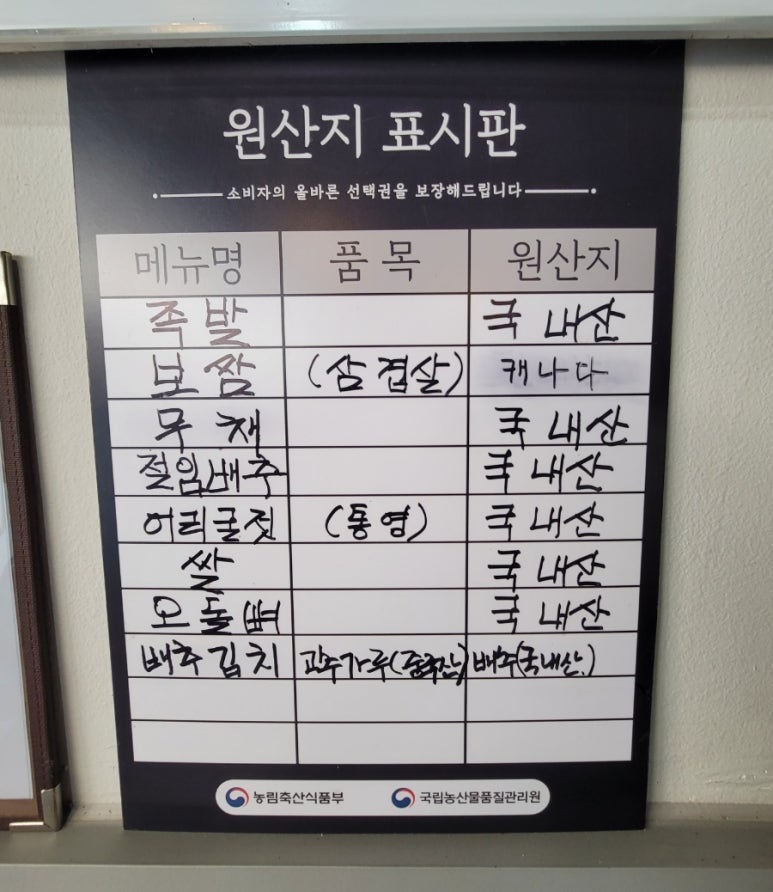 원산지 표시판
소비자의 올바른 선택권을 보장해드립니다
메뉴명 품목 원산지
족발 국내산
보쌈 (삼겹살) 캐나다
무채 국내산
절임배추 국내산
어리굴젓 (통영) 국내산
쌀 국내산
오돌뼈 국내산
배추김치 고추가루(중국산) 배추(국내산)
농림축산식품부 국립농산물품질관리원